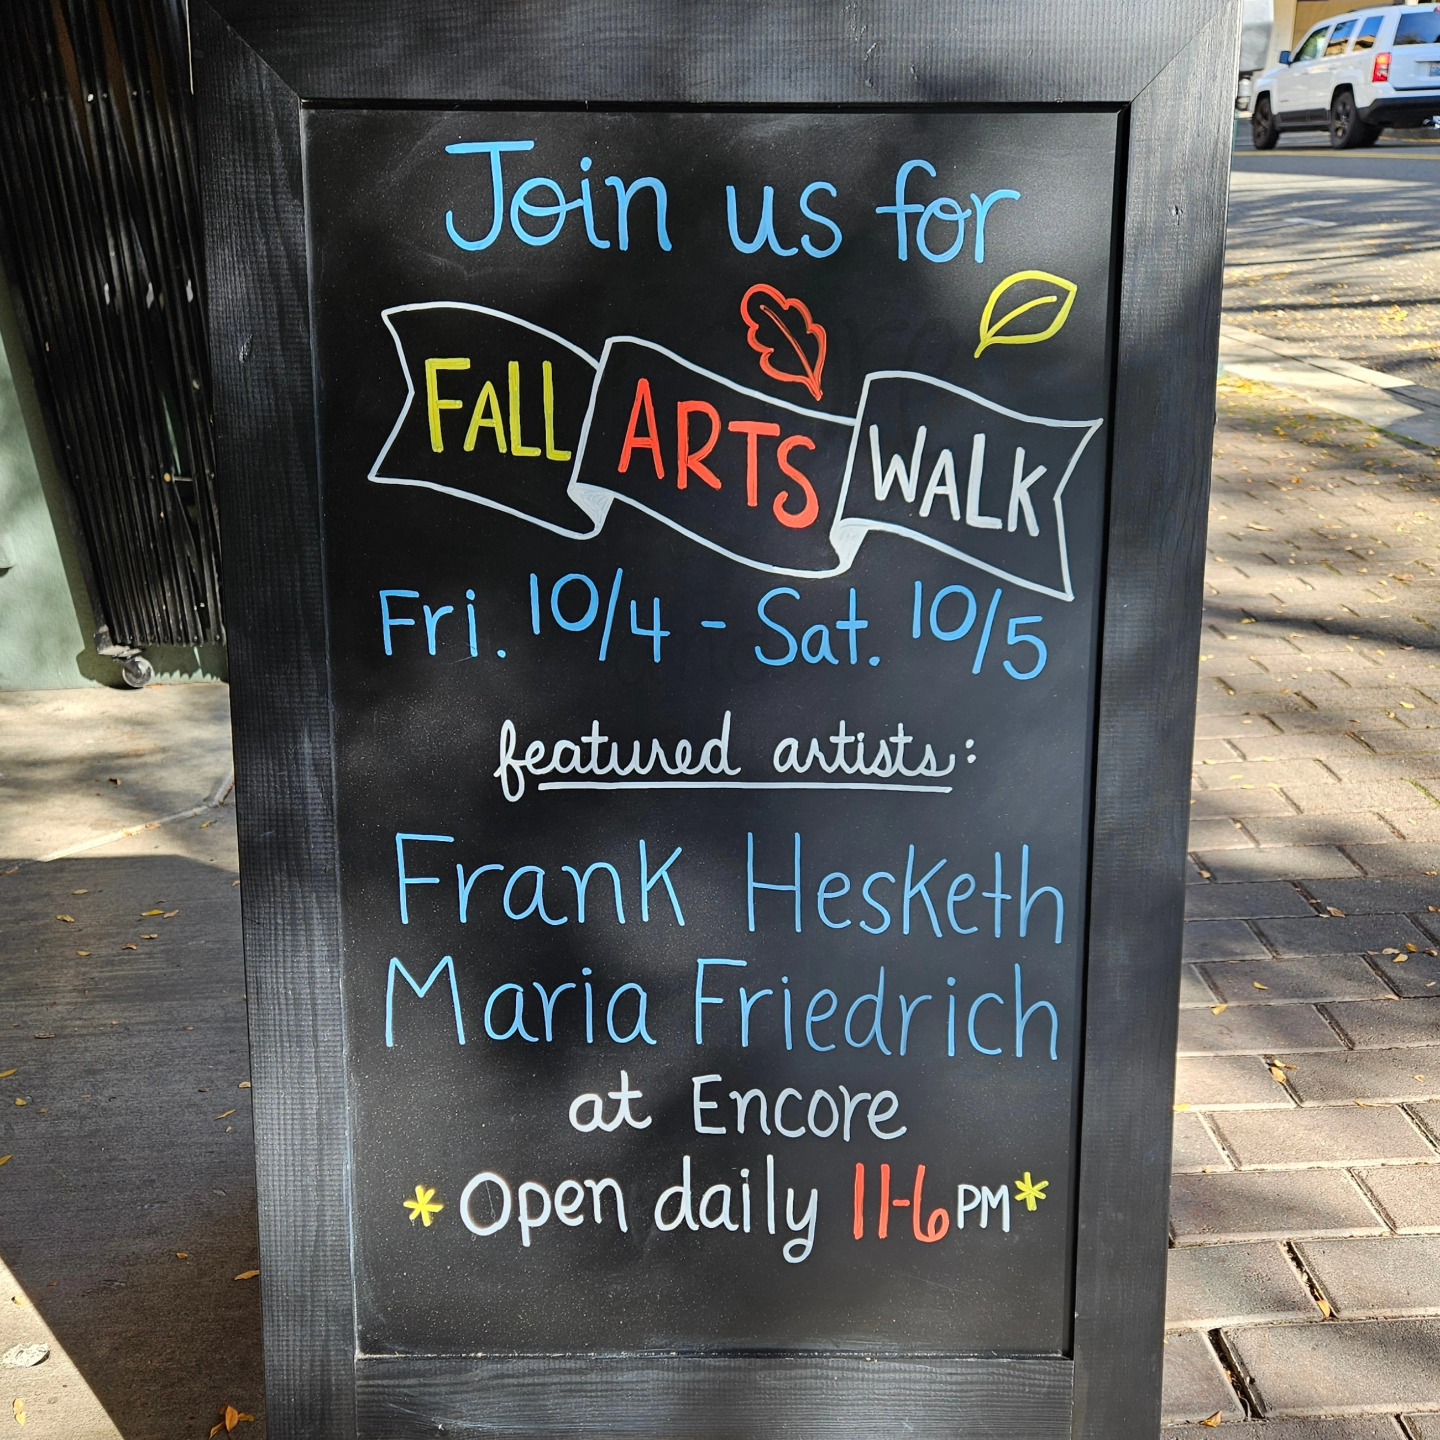 Join us for
FALL ARTS WALK
Fri. 10/4 - Sat. 10/5
featured artists:
Frank Hesketh
Maria Friedrich
at Encore
*Open daily 11-6PM*